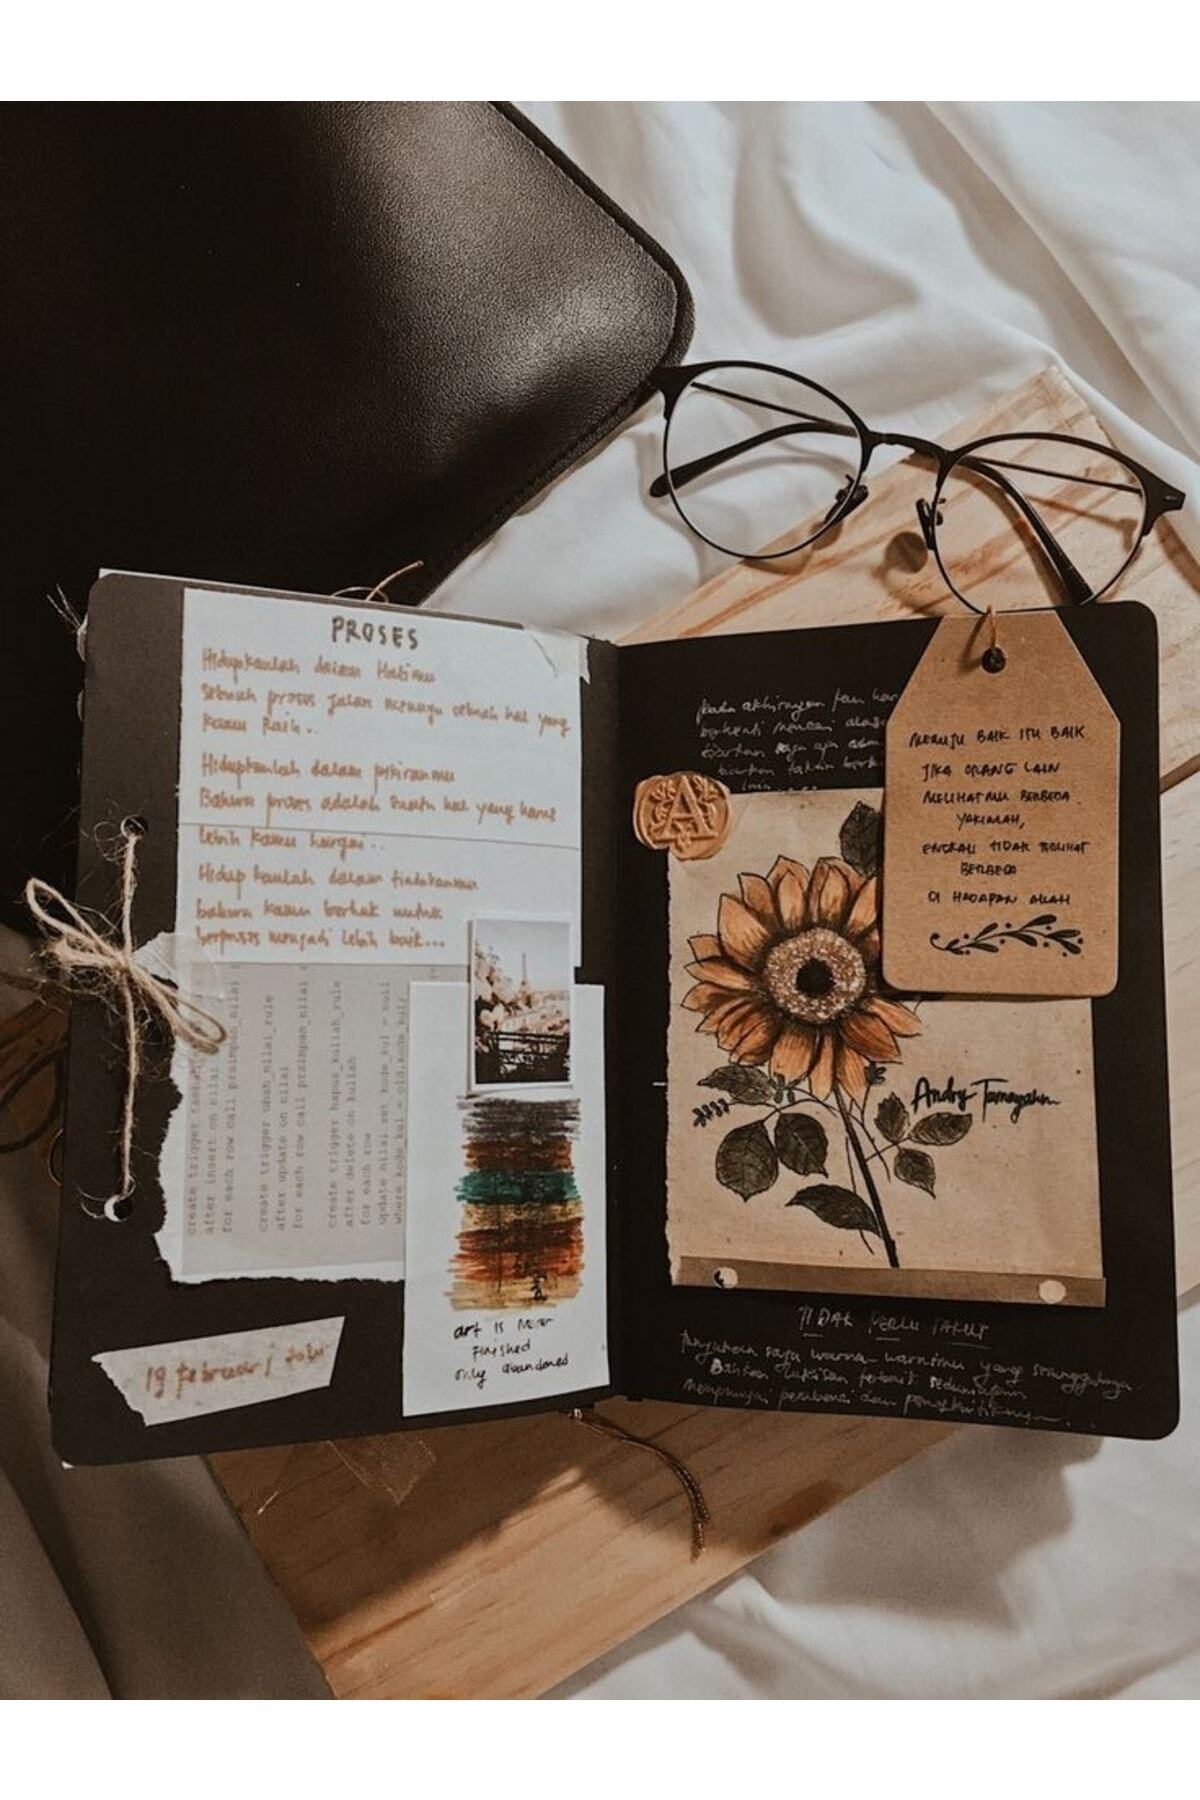 PROSES
Hidupkanlah dalam Hatimu
Sebuah proses jalan menuju sebuah hal yang
kamu Raih..
Hidupkanlah dalam pikiranmu
Bahwa proses adalah suatu hal yang harus
lebih kamu hargai..
Hidupkanlah dalam tindakanmu
bahwa kamu berhak untuk
berproses menjadi lebih baik...
create trigger
after insert on nilai
for each row call prsimpan_nilai
create trigger ubah_nilai_rule
after update on nilai
for each row call prsimpan_nilai
create trigger hapus_kuliah_rule
after delete on kuliah
for each row
update nilai set kode_kul = null
where kode_kul = old.kode_kul;
art is never
finished
only abandoned
19 Februari
pada akhirnya
berhenti mencari
A
MENUJU BAIK ITU BAIK
JIKA ORANG LAIN
MELIHATMU BERBEDA
YAKINLAH,
ENGKAU TIDAK TERLIHAT
BERBEDA
DI HADAPAN ALLAH
Andry
TIDAK PERLU TAKUT
Tunjukkan saja warna-warnimu yang sesungguhnya.
Bahkan lukisan terbaik sekalipun
mempunyai pembenci dan pengkritiknya...